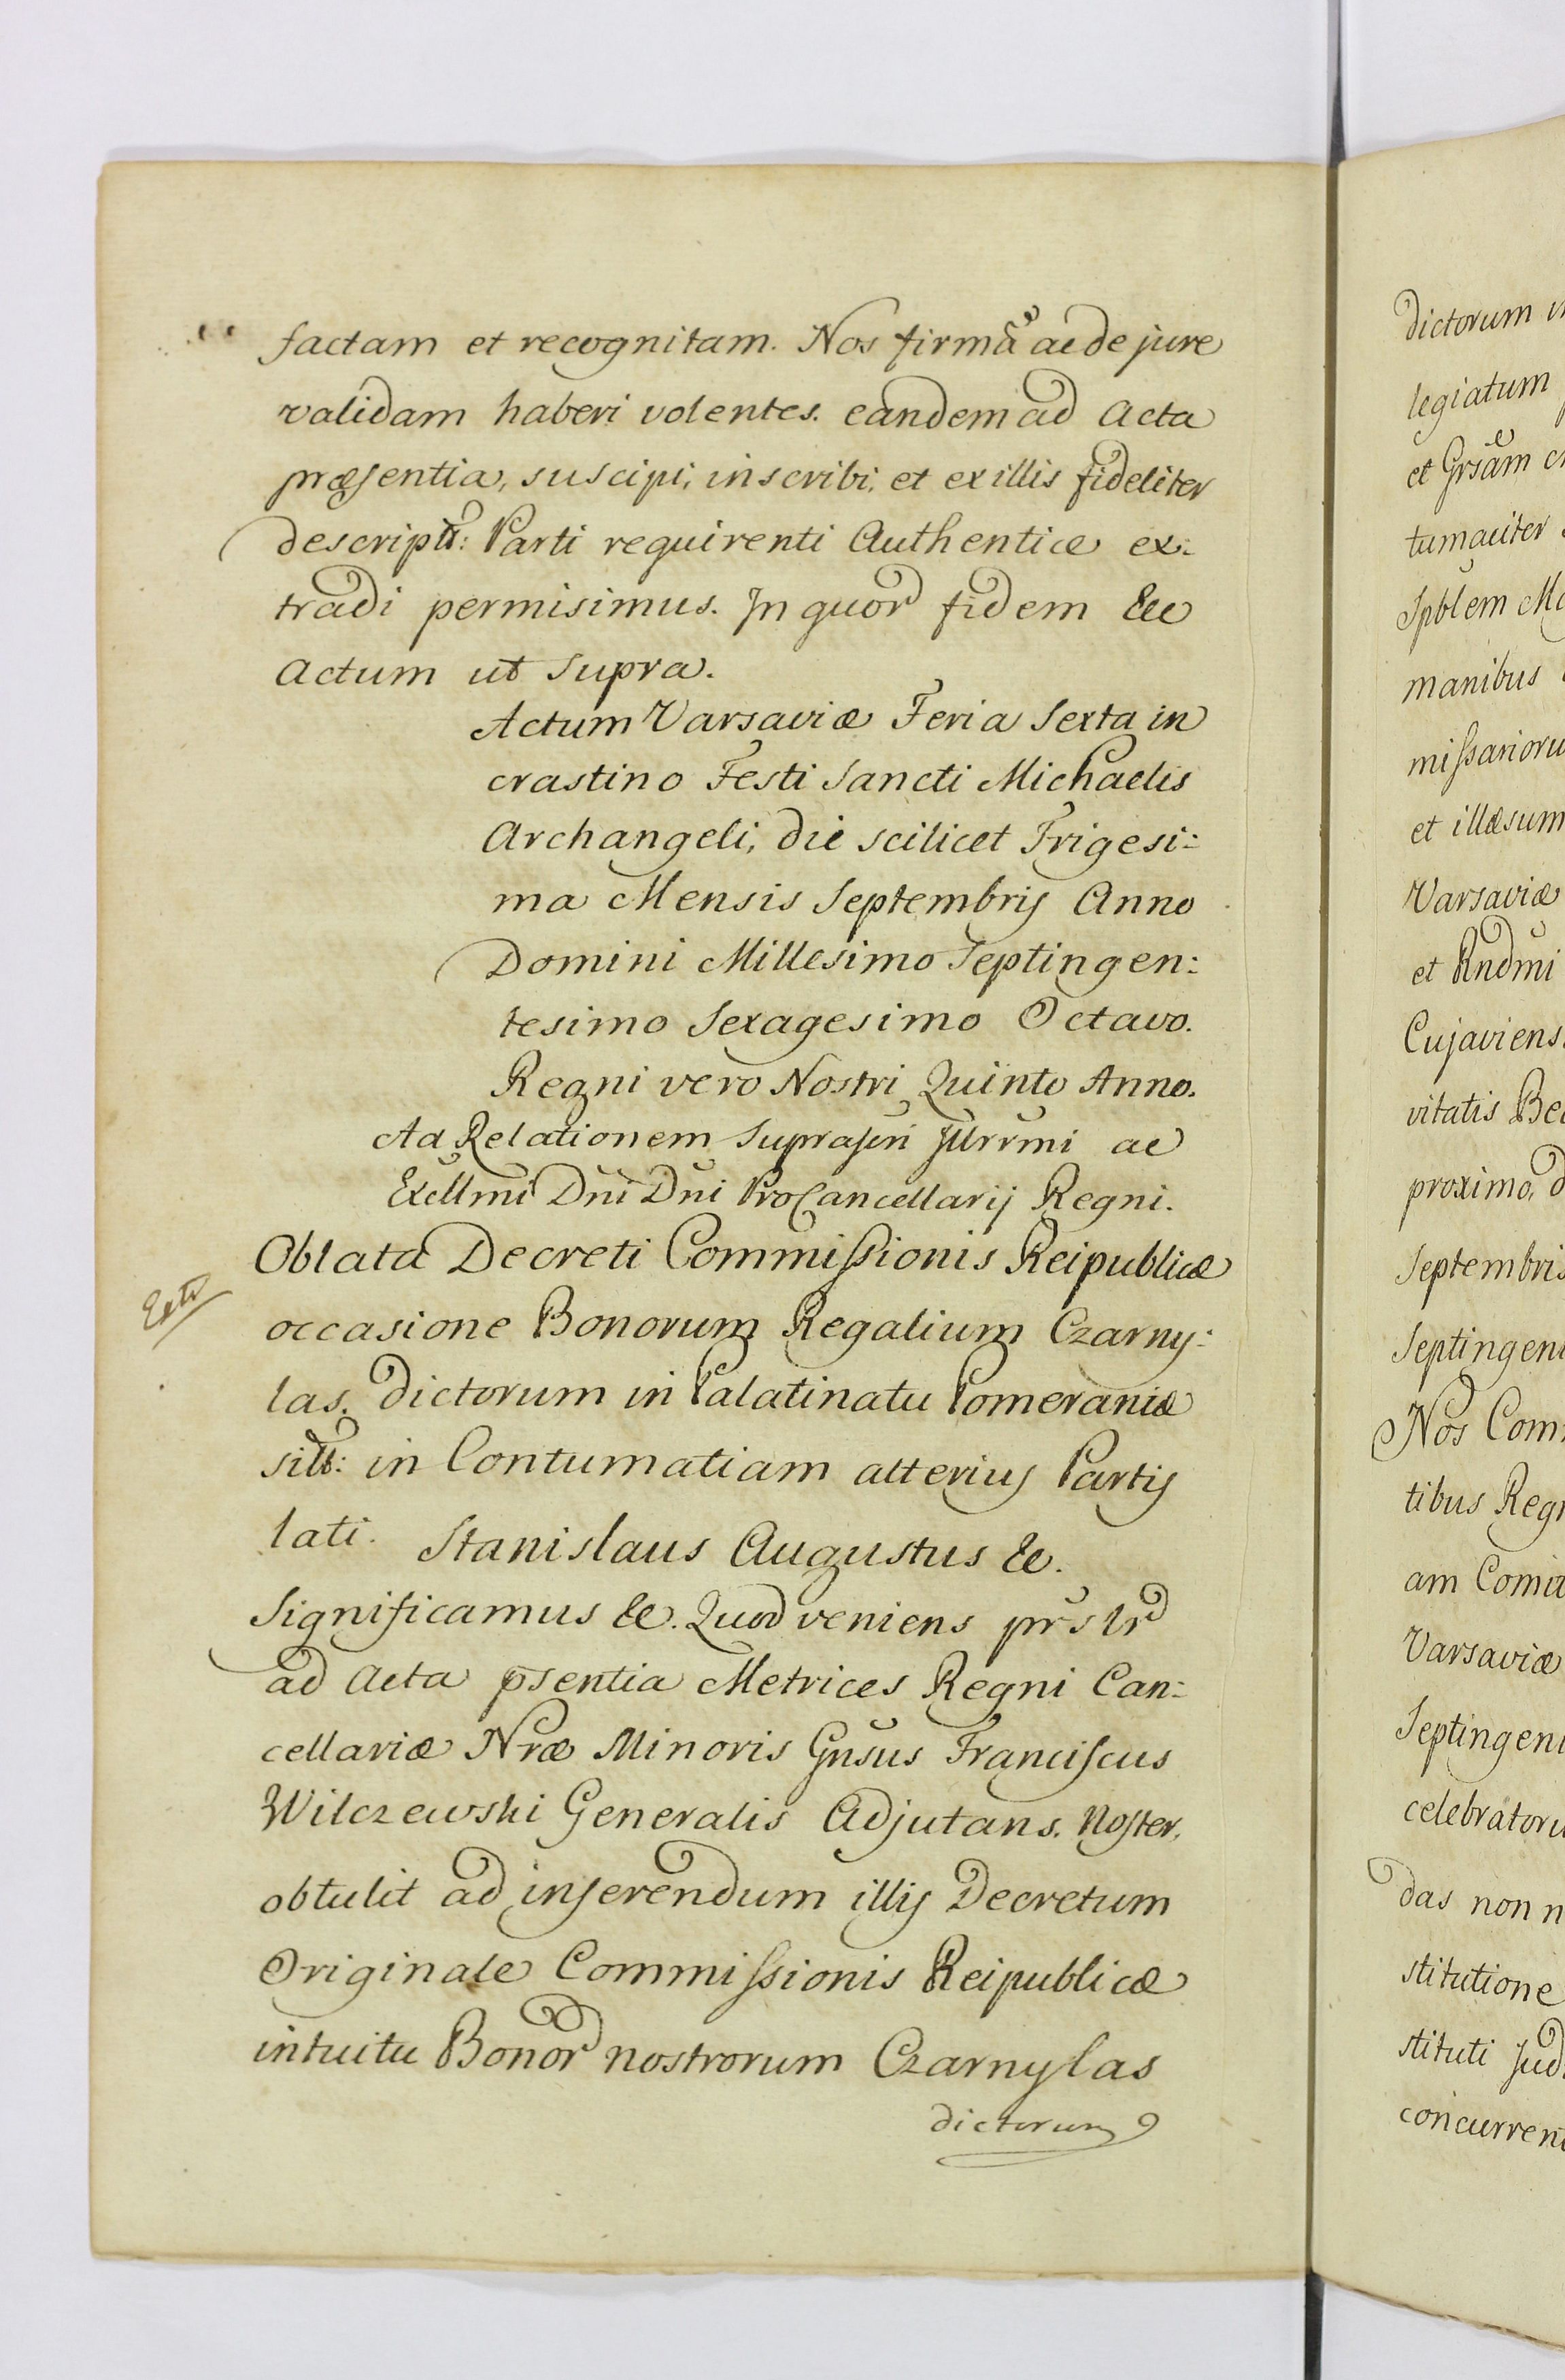 factam et recognitam. Nos firmã ac de jure
validam haberi volentes. eandem ad Acta
præsentia, suscipi, inscribi, et ex illis fideliter
descriptt: Parti requirenti Authentice ex:
tradi permisimus. In quor fidem &c
Actum ut supra.
Actum Varsaviæ Feria Sexta in
crastino Festi Sancti Michaelis
Archangeli, die scilicet Trigesi:
ma Mensis Septembris Anno
Domini Millesimo Septingen:
tesimo Sexagesimo Octavo.
Regni vero Nostri Quinto Anno.
Ad Relationem suprascri Illrmi ac
Excllmi Dni Dni ProCancellarij Regni.
Oblata Decreti Commissionis Reipublicæ
occasione Bonorum Regalium Czarny:
las. dictorum in Palatinatu Pomeraniæ
sitt: in Contumatiam alterius Partis
lati. Stanislaus Augustus &c.
Significamus &c. Quod veniens prs
ad Acta psentia Metrices Regni Can:
cellariæ Nræ Minoris Gnsus Franciscus
Wilczewski Generalis Adjutans. Noster.
obtulit ad inserendum illis Decretum
Originale Commissionis Reipublicæ
intuitu Bonor nostrorum Czarnylas
dictorum
dictorum
legiatum
et Grsam
tumaciter
Spblem
manibus
missarioru
et illæsum
Varsaviæ
et Rndmi
Cujaviens
vitatis
proximo,
Septembris
Septingen
Nos Com
tibus Reg
am
Varsaviæ
Septingen
celebratoru
das non
stitutione
stituti
concurren